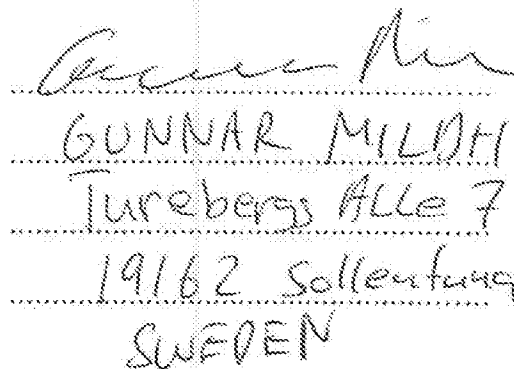 GUNNAR MILDH
Turebergs Alle 7
19162 Sollentuna
SWEDEN